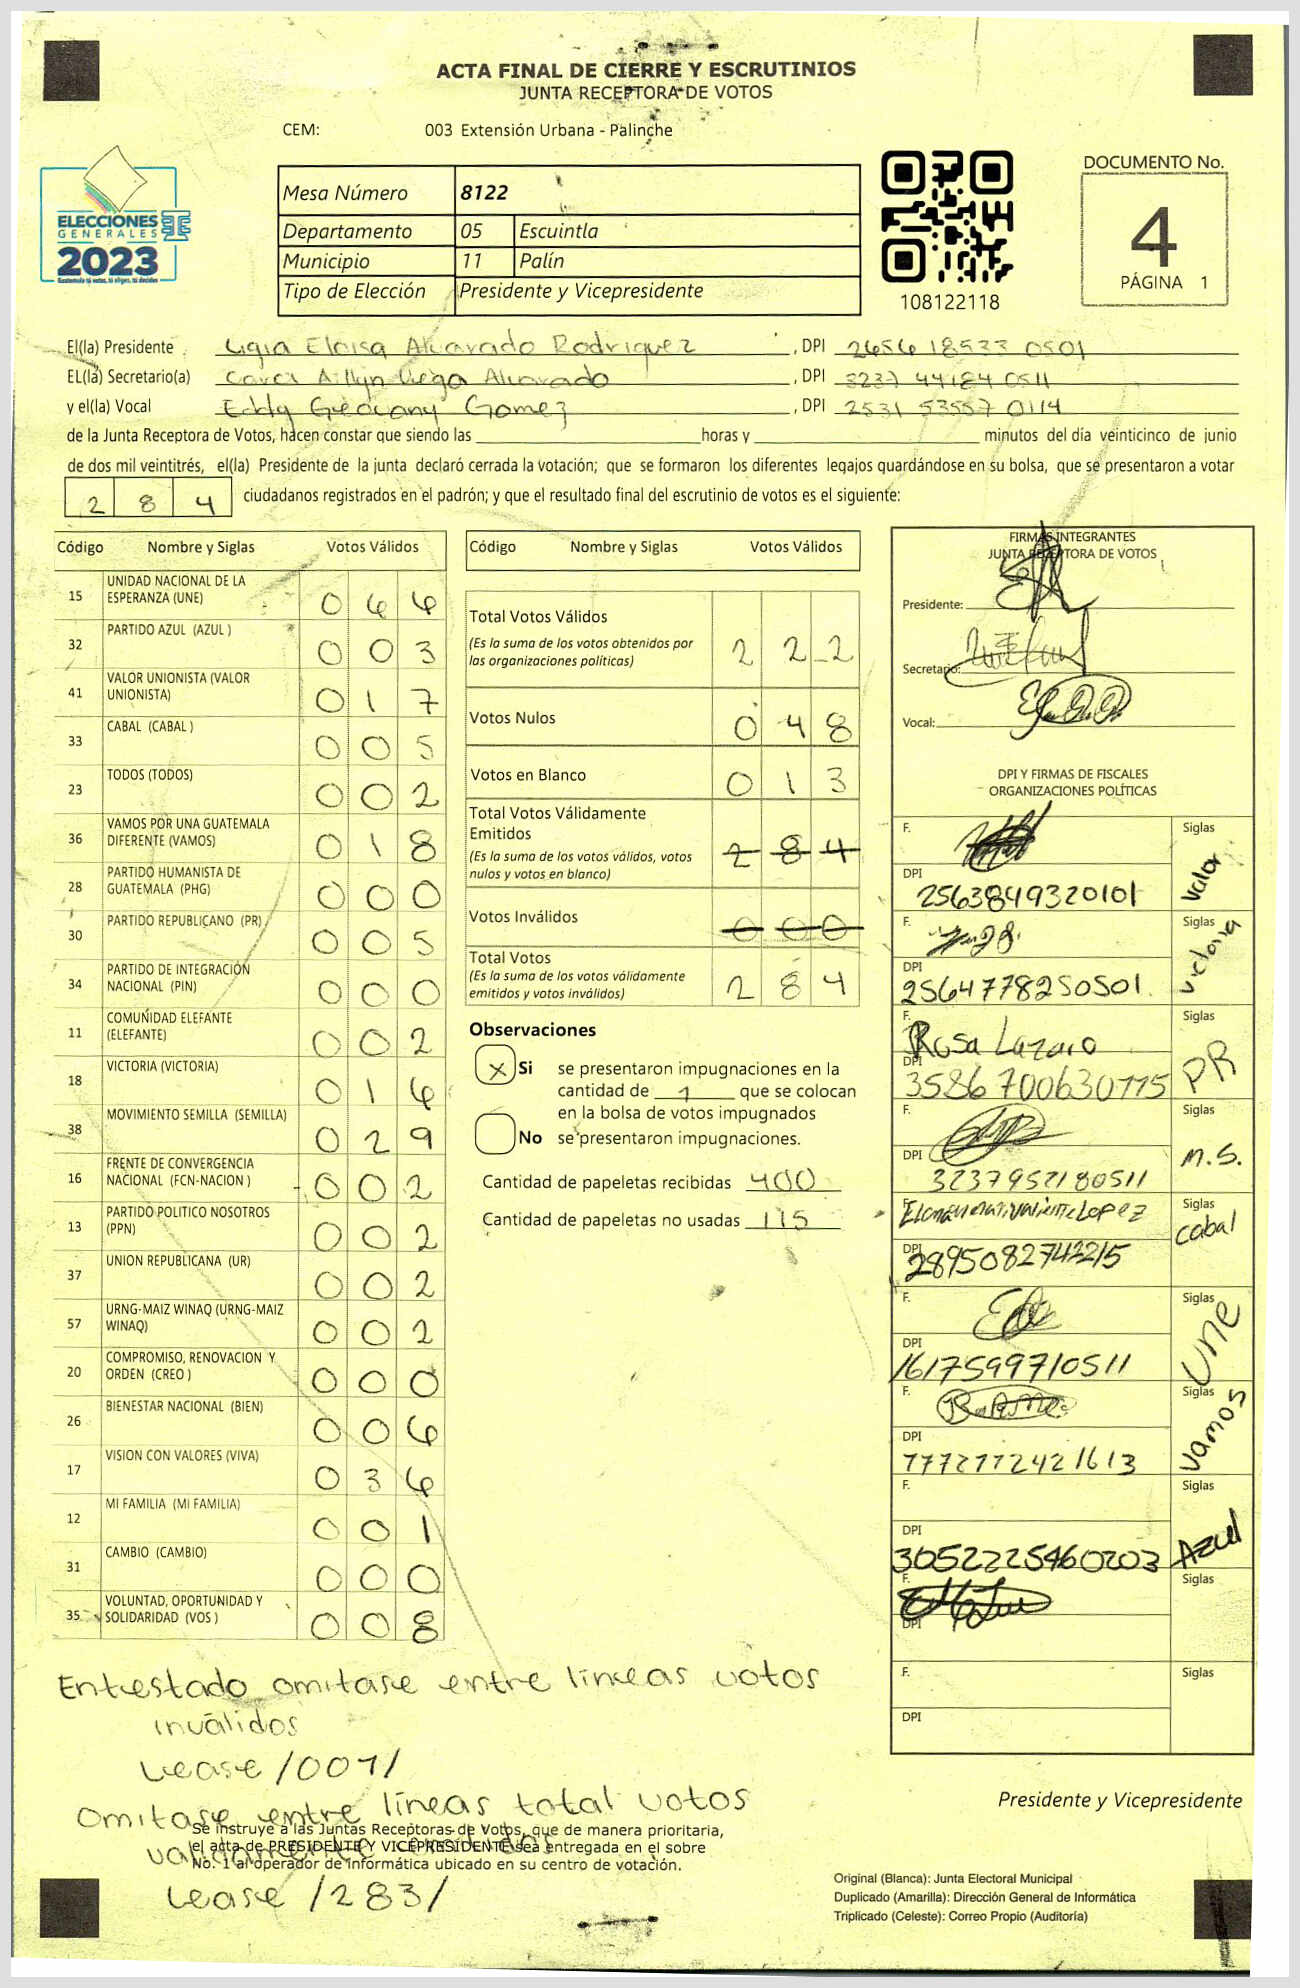 ACTA FINAL DE CIERRE Y ESCRUTINIOS
JUNTA RECEPTORA DE VOTOS
CEM: 003 Extensión Urbana - Palinche
ELECCIONES
GENERALES
2023
Guatemala tú votas, tú eliges, tú decides
Mesa Número 8122
Departamento 05 Escuintla
Municipio 11 Palín
Tipo de Elección Presidente y Vicepresidente
108122118
DOCUMENTO No.
4
PÁGINA 1
El(la) Presidente Ligia Eloisa Alvarado Rodriguez , DPI 2656 18533 0501
EL(la) Secretario(a) Vega Alvarado , DPI 3237 44184 0511
y el(la) Vocal Eddy Geovany Gomez , DPI 2531 53557 0114
de la Junta Receptora de Votos, hacen constar que siendo las horas y minutos del día veinticinco de junio
de dos mil veintitrés, el(la) Presidente de la junta declaró cerrada la votación; que se formaron los diferentes legajos guardándose en su bolsa, que se presentaron a votar
2 8 4 ciudadanos registrados en el padrón; y que el resultado final del escrutinio de votos es el siguiente:
Código Nombre y Siglas Votos Válidos
15 UNIDAD NACIONAL DE LA ESPERANZA (UNE) 0 6 6
32 PARTIDO AZUL (AZUL ) 0 0 3
41 VALOR UNIONISTA (VALOR UNIONISTA) 0 1 7
33 CABAL (CABAL ) 0 0 5
23 TODOS (TODOS) 0 0 2
36 VAMOS POR UNA GUATEMALA DIFERENTE (VAMOS) 0 1 8
28 PARTIDO HUMANISTA DE GUATEMALA (PHG) 0 0 0
30 PARTIDO REPUBLICANO (PR) 0 0 5
34 PARTIDO DE INTEGRACIÓN NACIONAL (PIN) 0 0 0
11 COMUNIDAD ELEFANTE (ELEFANTE) 0 0 2
18 VICTORIA (VICTORIA) 0 1 6
38 MOVIMIENTO SEMILLA (SEMILLA) 0 2 9
16 FRENTE DE CONVERGENCIA NACIONAL (FCN-NACION ) 0 0 2
13 PARTIDO POLITICO NOSOTROS (PPN) 0 0 2
37 UNION REPUBLICANA (UR) 0 0 2
57 URNG-MAIZ WINAQ (URNG-MAIZ WINAQ) 0 0 2
20 COMPROMISO, RENOVACION Y ORDEN (CREO ) 0 0 0
26 BIENESTAR NACIONAL (BIEN) 0 0 6
17 VISION CON VALORES (VIVA) 0 3 6
12 MI FAMILIA (MI FAMILIA) 0 0 1
31 CAMBIO (CAMBIO) 0 0 0
35 VOLUNTAD, OPORTUNIDAD Y SOLIDARIDAD (VOS ) 0 0 8
Código Nombre y Siglas Votos Válidos
Total Votos Válidos 2 2 2
(Es la suma de los votos obtenidos por
las organizaciones políticas)
Votos Nulos 0 4 8
Votos en Blanco 0 1 3
Total Votos Válidamente
Emitidos 2 8 4
(Es la suma de los votos válidos, votos
nulos y votos en blanco)
Votos Inválidos 0 0 0
Total Votos 2 8 4
(Es la suma de los votos válidamente
emitidos y votos inválidos)
Observaciones
X Si se presentaron impugnaciones en la
cantidad de 1 que se colocan
en la bolsa de votos impugnados
No se presentaron impugnaciones.
Cantidad de papeletas recibidas 400
Cantidad de papeletas no usadas 115
FIRMAS INTEGRANTES
JUNTA RECEPTORA DE VOTOS
Presidente:
Secretario:
Vocal:
DPI Y FIRMAS DE FISCALES
ORGANIZACIONES POLÍTICAS
F. Siglas Valor
DPI 2563849320101
F. Siglas Victoria
DPI 2564778250501
F. Rosa Lazaro Siglas PR
DPI 3586700630115
F. Siglas M.S.
DPI 3237952180511
F. Lopez Siglas Cabal
DPI 2895082742215
F. Siglas UNE
DPI 1617599710511
F. Siglas Vamos
DPI 1772772421613
F. Siglas Azul
DPI 3052225460203
F. Siglas
DPI
F. Siglas
DPI
Entestado omitase entre líneas votos
inválidos
Lease /001/
Omitase entre líneas total votos
validamente emitidos
Lease /283/
Se instruye a las Juntas Receptoras de Votos, que de manera prioritaria,
el acta de PRESIDENTE Y VICEPRESIDENTE sea entregada en el sobre
No. 1 al operador de informática ubicado en su centro de votación.
Presidente y Vicepresidente
Original (Blanca): Junta Electoral Municipal
Duplicado (Amarilla): Dirección General de Informática
Triplicado (Celeste): Correo Propio (Auditoría)